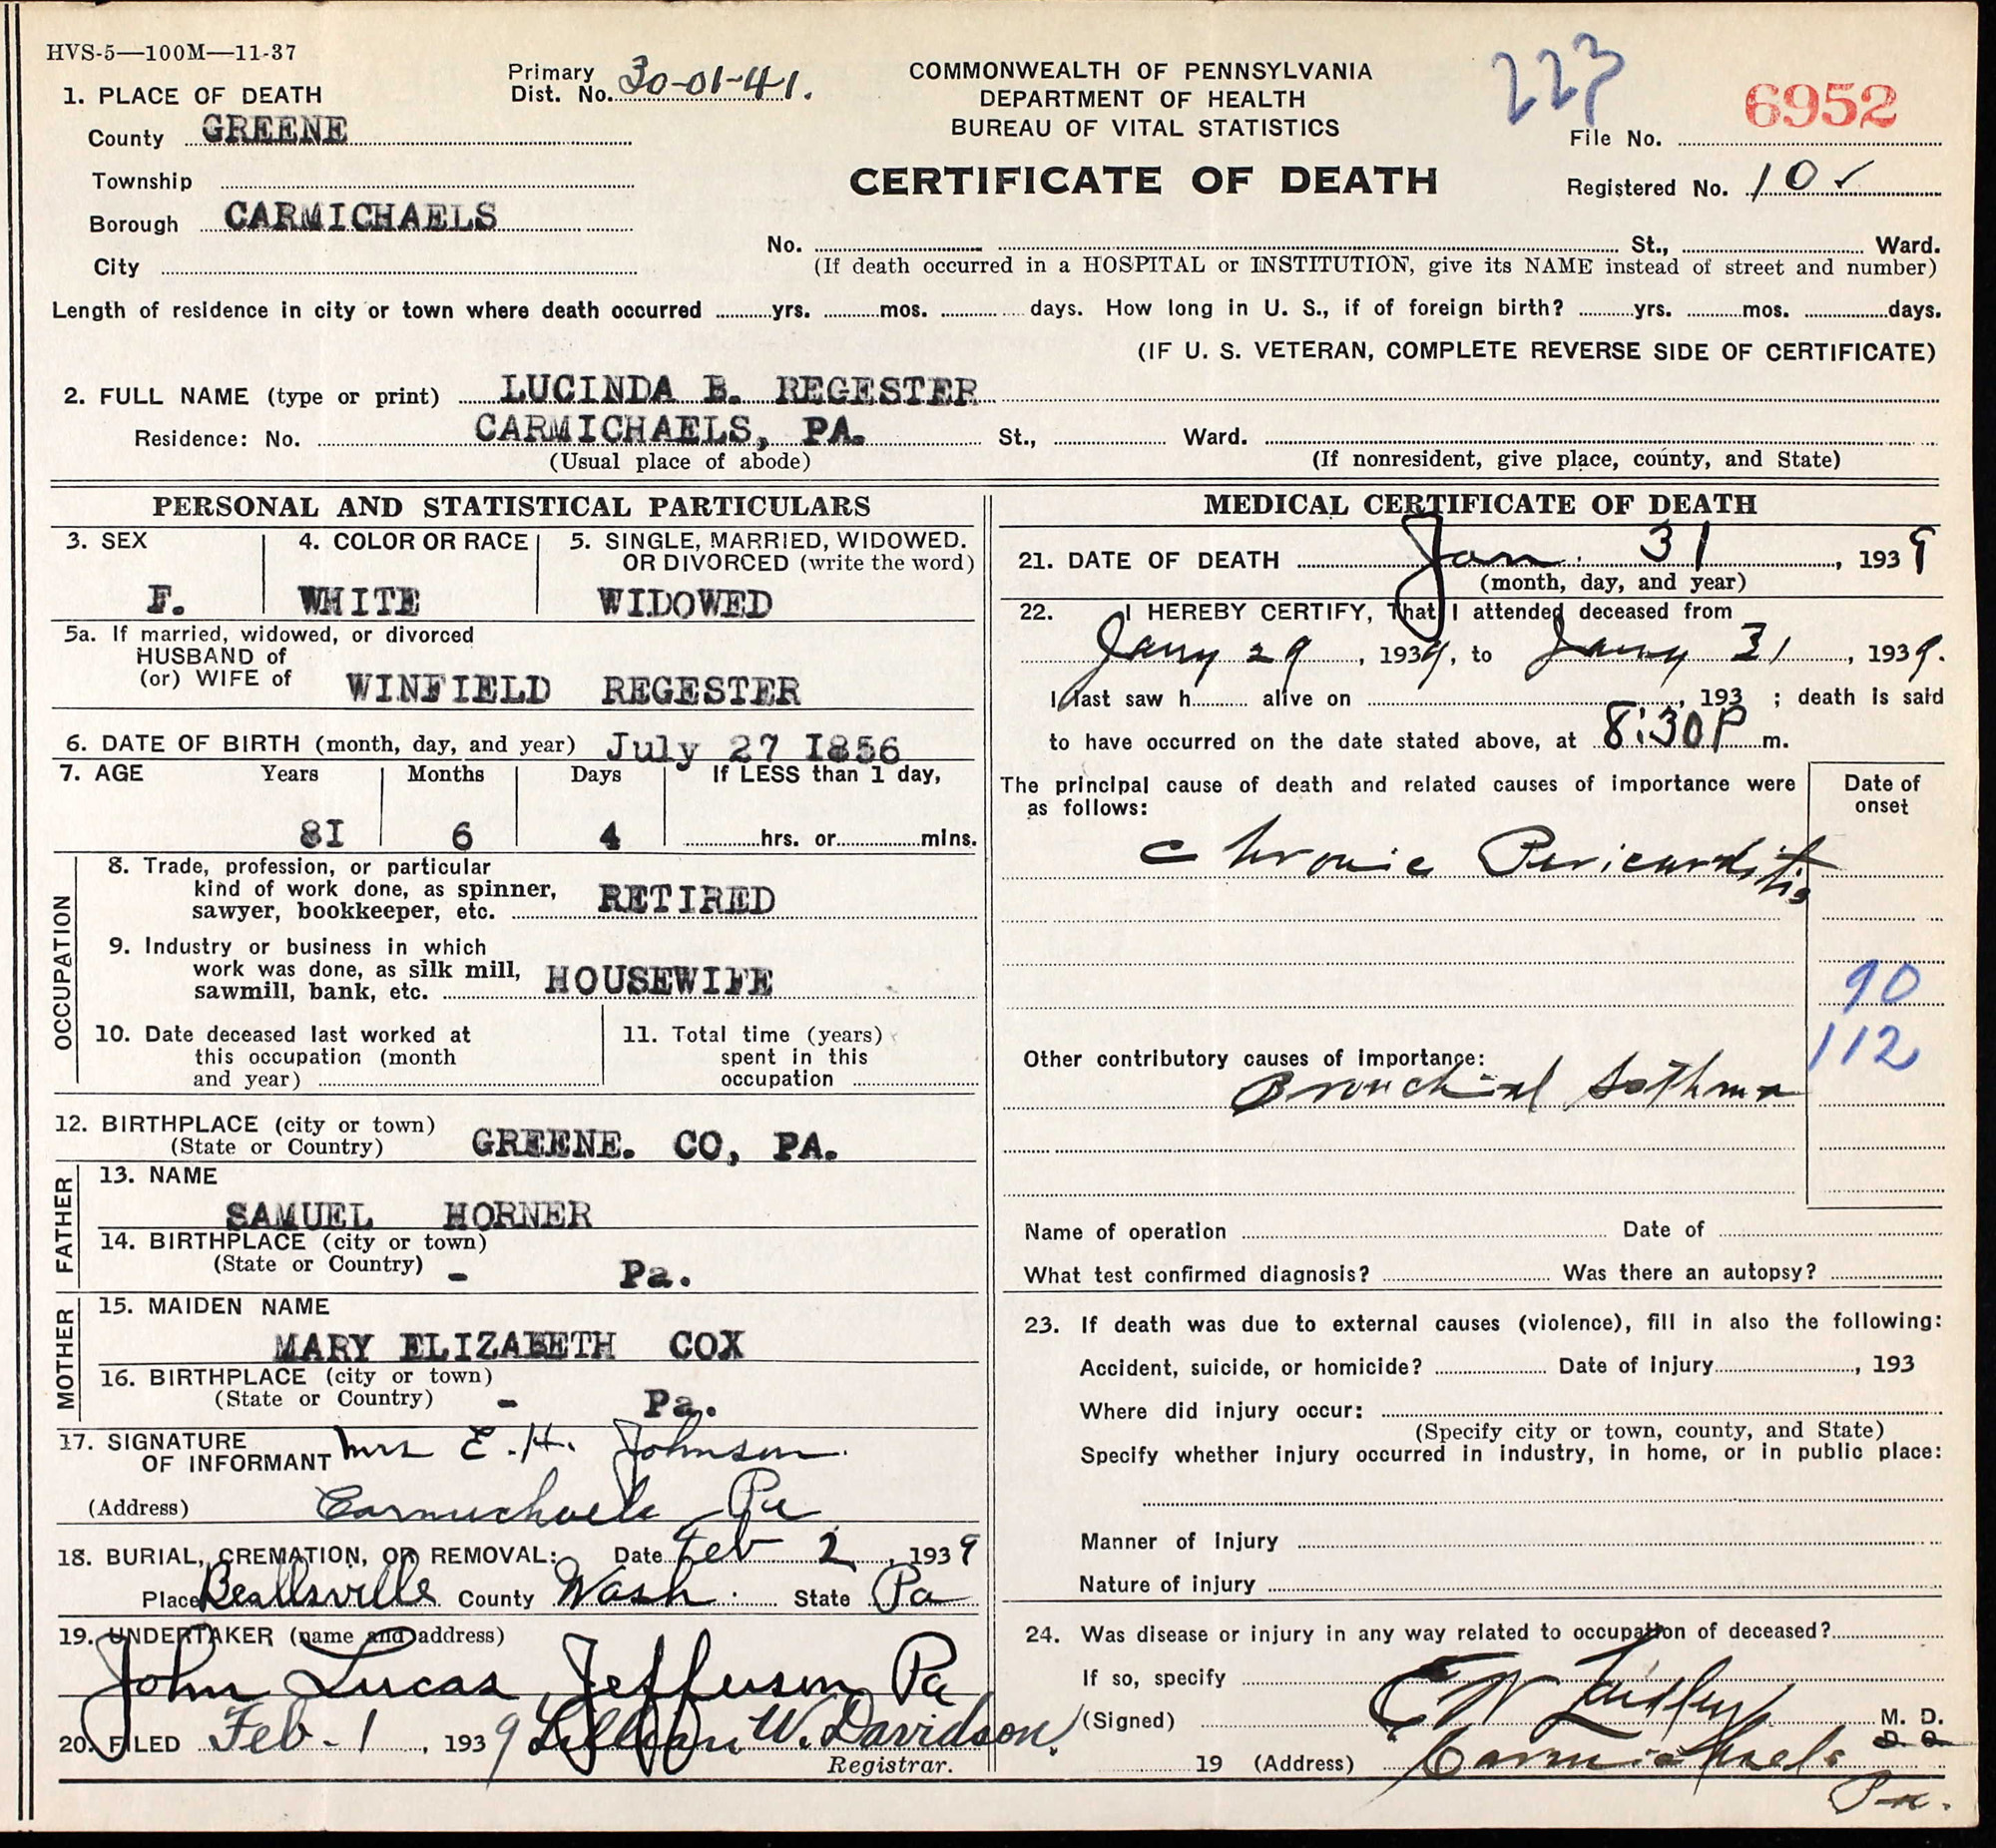 HVS-5—100M—11-37
Primary
Dist. No. 30-01-41.
COMMONWEALTH OF PENNSYLVANIA
DEPARTMENT OF HEALTH
BUREAU OF VITAL STATISTICS
CERTIFICATE OF DEATH
223
6952
File No.
Registered No. 10 ✓
1. PLACE OF DEATH
County GREENE
Township
Borough CARMICHAELS
City
No. St., Ward.
(If death occurred in a HOSPITAL or INSTITUTION, give its NAME instead of street and number)
Length of residence in city or town where death occurred yrs. mos. days. How long in U. S., if of foreign birth? yrs. mos. days.
(IF U. S. VETERAN, COMPLETE REVERSE SIDE OF CERTIFICATE)
2. FULL NAME (type or print) LUCINDA B. REGESTER
Residence: No. CARMICHAELS, PA. St., Ward.
(Usual place of abode) (If nonresident, give place, county, and State)
PERSONAL AND STATISTICAL PARTICULARS
3. SEX
F.
4. COLOR OR RACE
WHITE
5. SINGLE, MARRIED, WIDOWED.
OR DIVORCED (write the word)
WIDOWED
5a. If married, widowed, or divorced
HUSBAND of
(or) WIFE of WINFIELD REGESTER
6. DATE OF BIRTH (month, day, and year) July 27 I856
7. AGE Years Months Days If LESS than 1 day,
8I 6 4 hrs. or mins.
OCCUPATION
8. Trade, profession, or particular
kind of work done, as spinner,
sawyer, bookkeeper, etc. RETIRED
9. Industry or business in which
work was done, as silk mill,
sawmill, bank, etc. HOUSEWIFE
10. Date deceased last worked at
this occupation (month
and year)
11. Total time (years)
spent in this
occupation
12. BIRTHPLACE (city or town)
(State or Country) GREENE. CO, PA.
FATHER
13. NAME
SAMUEL HORNER
14. BIRTHPLACE (city or town)
(State or Country) - Pa.
MOTHER
15. MAIDEN NAME
MARY ELIZABETH COX
16. BIRTHPLACE (city or town)
(State or Country) - Pa.
17. SIGNATURE
OF INFORMANT Mrs E. H. Johnson.
(Address) Carmichaels Pa
18. BURIAL, CREMATION, OR REMOVAL: Date Feb 2, 1939
Place Beallsville County Wash. State Pa
19. UNDERTAKER (name and address)
John Lucas, Jefferson Pa
20. FILED Feb - 1, 1939 Lillian W. Davidson.
Registrar.
MEDICAL CERTIFICATE OF DEATH
21. DATE OF DEATH Jan. 31, 1939
(month, day, and year)
22. I HEREBY CERTIFY, That I attended deceased from
Jany 29, 1939, to Jany 31, 1939.
I last saw h alive on , 193 ; death is said
to have occurred on the date stated above, at 8:30P m.
The principal cause of death and related causes of importance were
as follows:
Date of
onset
Chronic Pericarditis
90
112
Other contributory causes of importance:
Bronchial Asthma
Name of operation Date of
What test confirmed diagnosis? Was there an autopsy?
23. If death was due to external causes (violence), fill in also the following:
Accident, suicide, or homicide? Date of injury , 193
Where did injury occur:
(Specify city or town, county, and State)
Specify whether injury occurred in industry, in home, or in public place:
Manner of injury
Nature of injury
24. Was disease or injury in any way related to occupation of deceased?
If so, specify
(Signed) M. D.
19 (Address) Carmichaels
Pa.